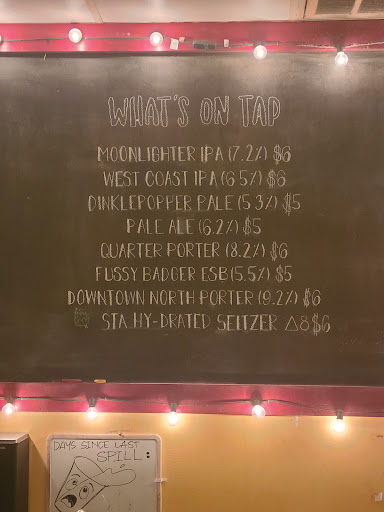 WHAT'S ON TAP
MOONLIGHTER IPA (7.2%) $6
WEST COAST IPA (6.5%) $6
DINKLEPOPPER PALE (5.3%) $5
PALE ALE (6.2%) $5
QUARTER PORTER (8.2%) $6
FUSSY BADGER ESB (5.5%) $5
DOWNTOWN NORTH PORTER (9.2%) $6
STA HY-DRATED SELTZER △8 $6
DAYS SINCE LAST
SPILL